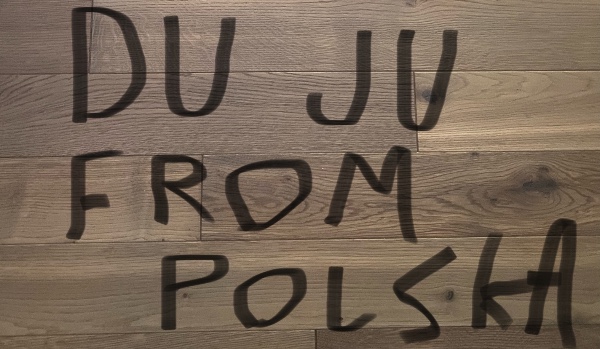 DU JU
FROM
POLSKA